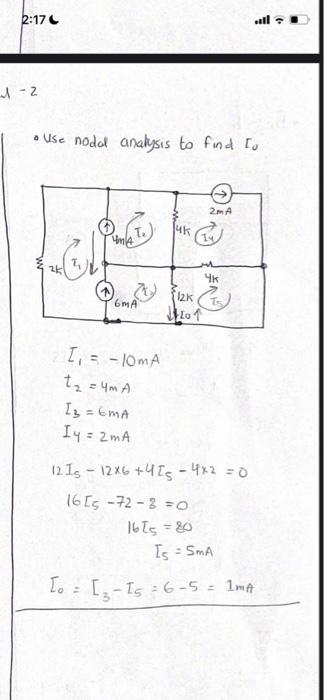 2:17
-2
• Use nodal analysis to find I₀
2mA
4mA
I₂
4K
I₄
2K
I₁
4K
6mA
I₃
12K
I₅
I₀
I₁ = -10mA
I₂ = 4mA
I₃ = 6mA
I₄ = 2mA
12I₅ - 12×6 + 4I₅ - 4×2 = 0
16I₅ - 72 - 8 = 0
16I₅ = 80
I₅ = 5mA
I₀ = I₃ - I₅ = 6 - 5 = 1mA